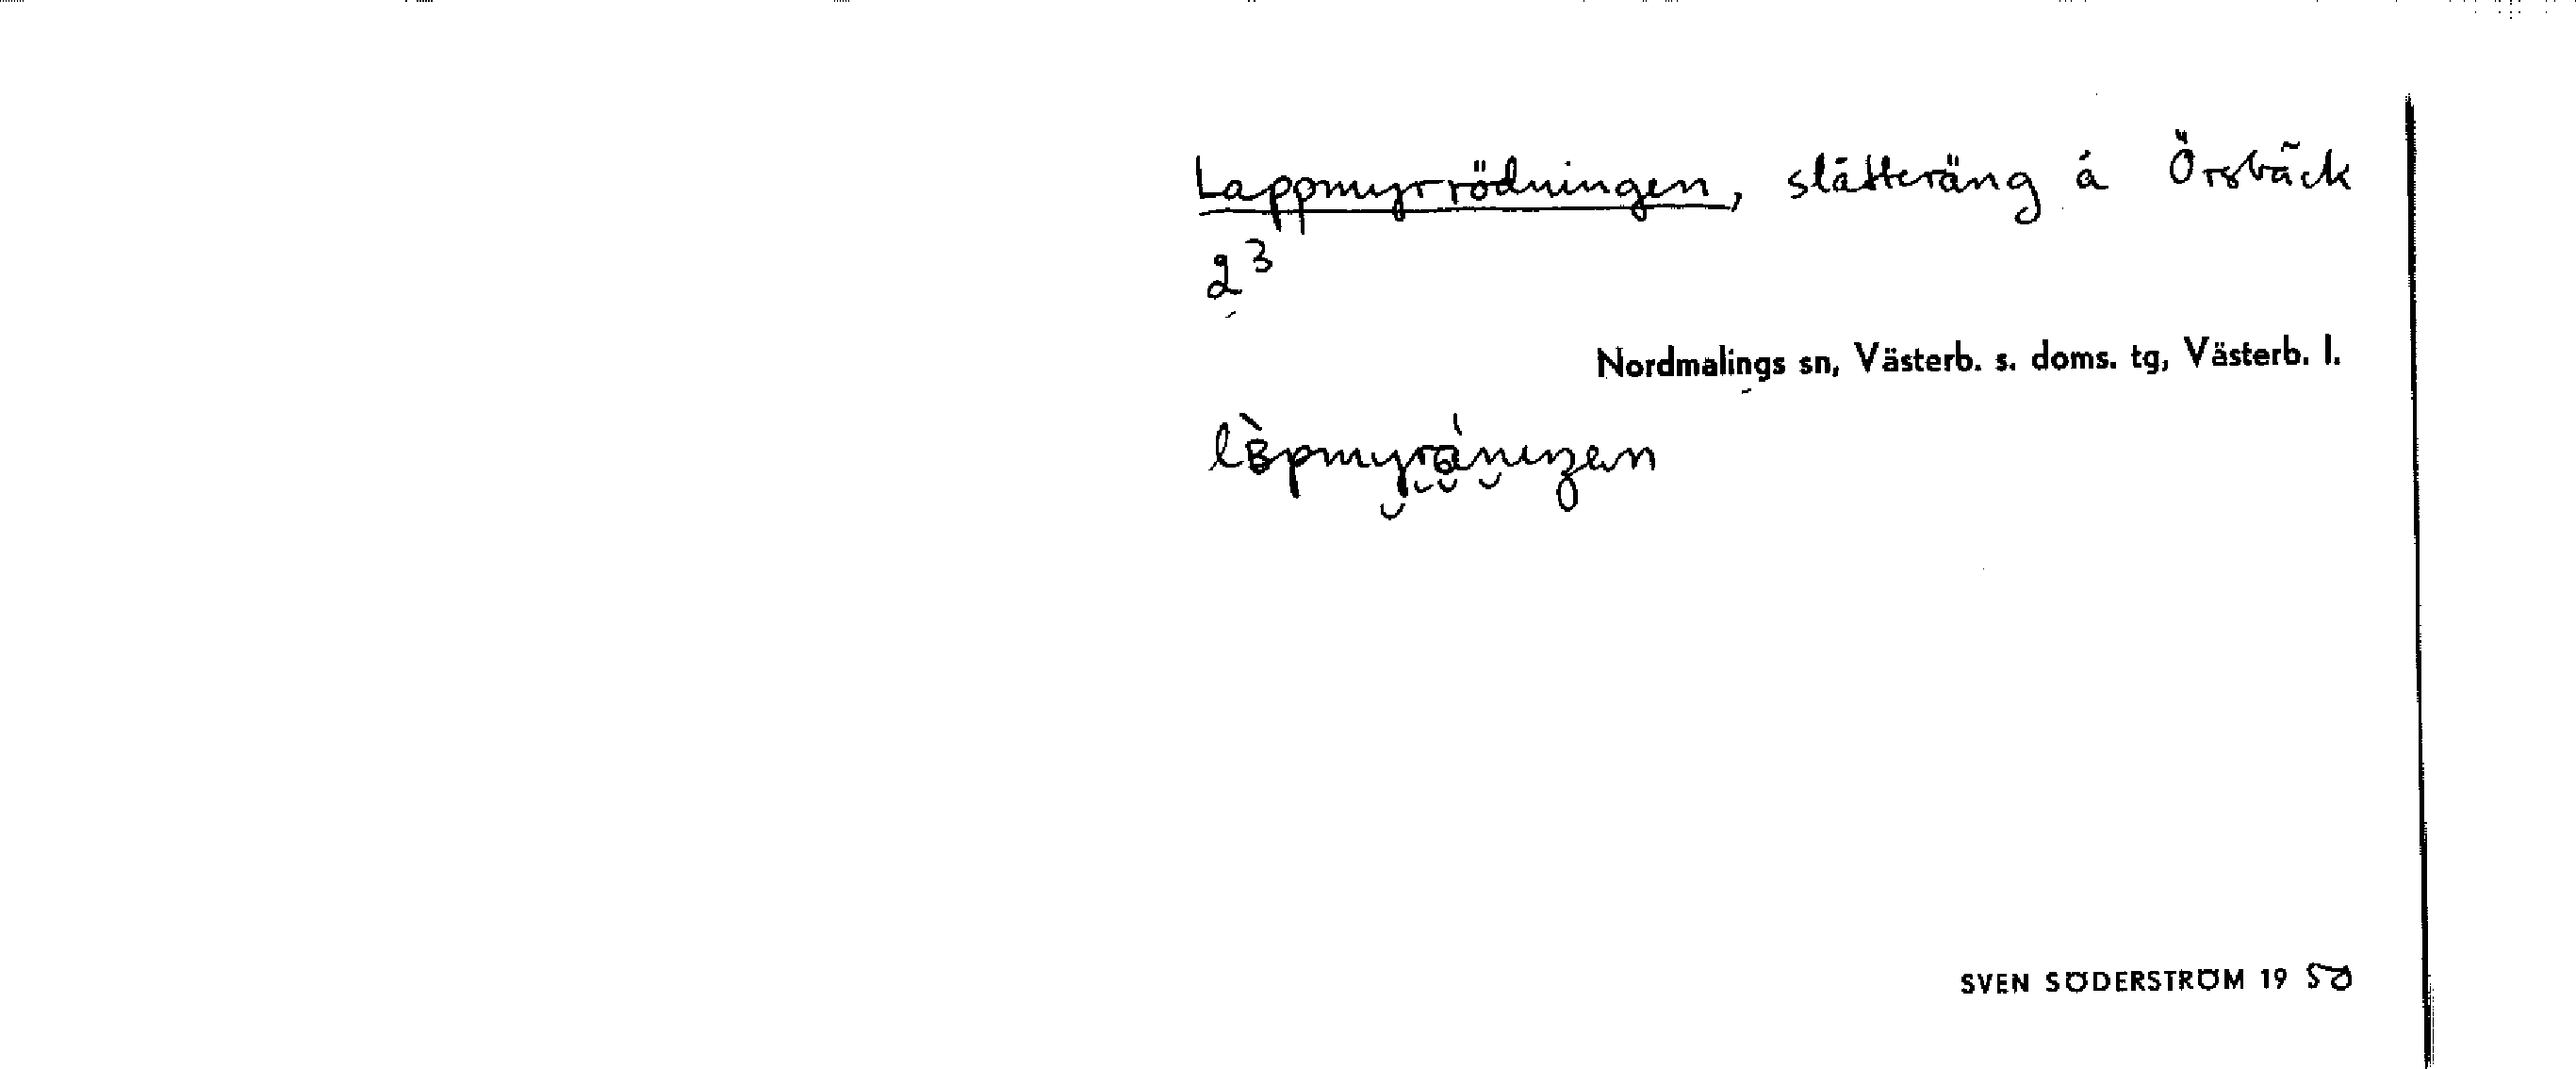 Lappmyrrödningen, slåtteräng å Örsbäck
2³
Nordmalings sn, Västerb. s. doms. tg, Västerb. l.
SVEN SÖDERSTRÖM 19 50